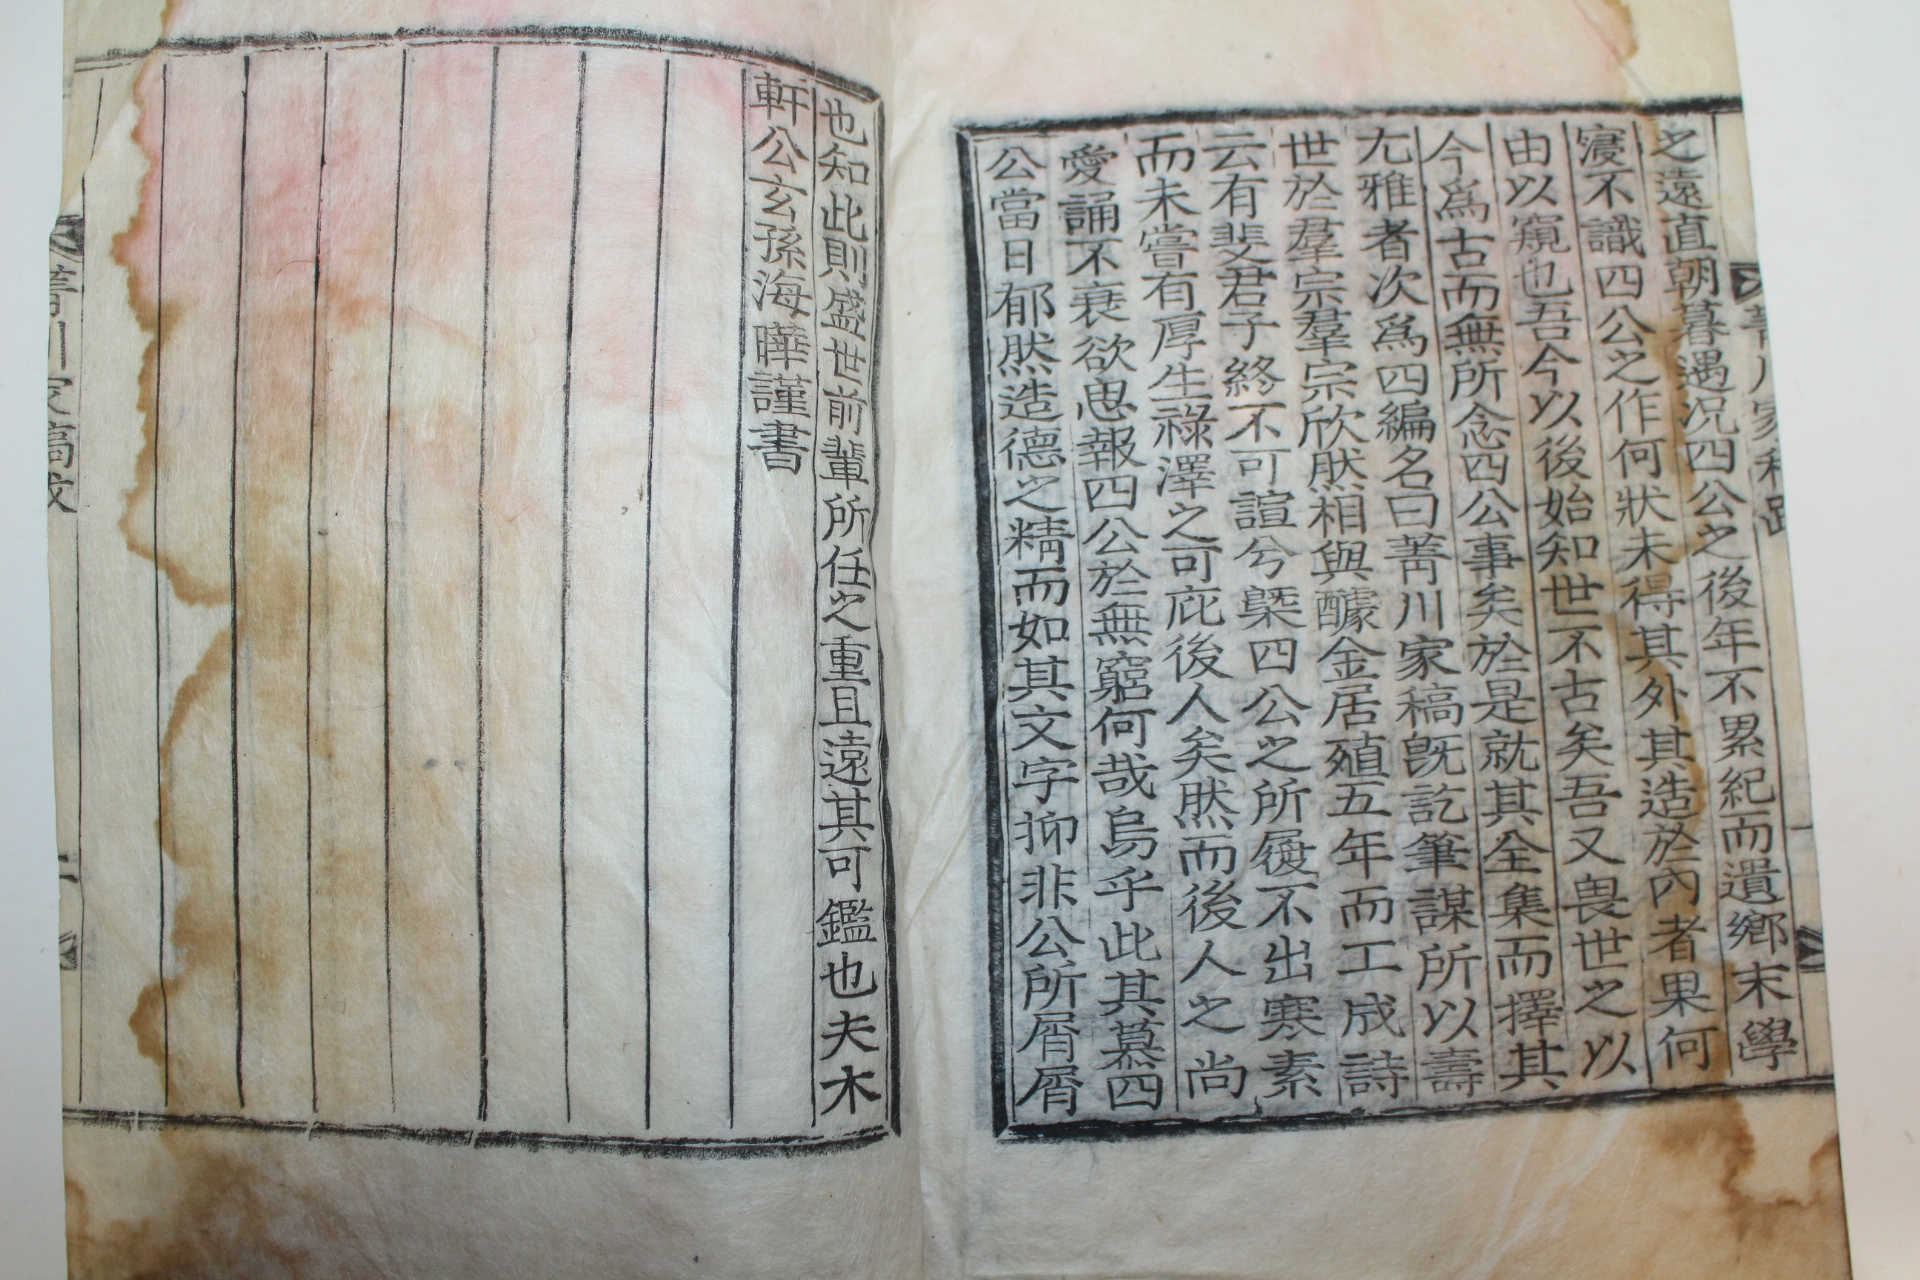 之遠直朝暮遇况四公之後年不累紀而遺鄉末學
寖不識四公之作何狀未得其外其造於內者果何
由以窺也吾今以後始知世不古矣吾又畏世之以
今爲古而無所念四公事矣於是就其全集而擇其
尤雅者次爲四編名曰菁川家稿旣訖筆謀所以壽
世於羣宗羣宗欣然相與醵金居殖五年而工成詩
云有斐君子終不可諠兮槩四公之所履不出寒素
而未嘗有厚生祿澤之可庇後人矣然而後人之尚
愛誦不衰欲思報四公於無窮何哉烏乎此其慕四
公當日郁然造德之精而如其文字抑非公所屑屑
也知此則盛世前輩所任之重且遠其可鑑也夫木
軒公玄孫海曄謹書
菁川家稿跋